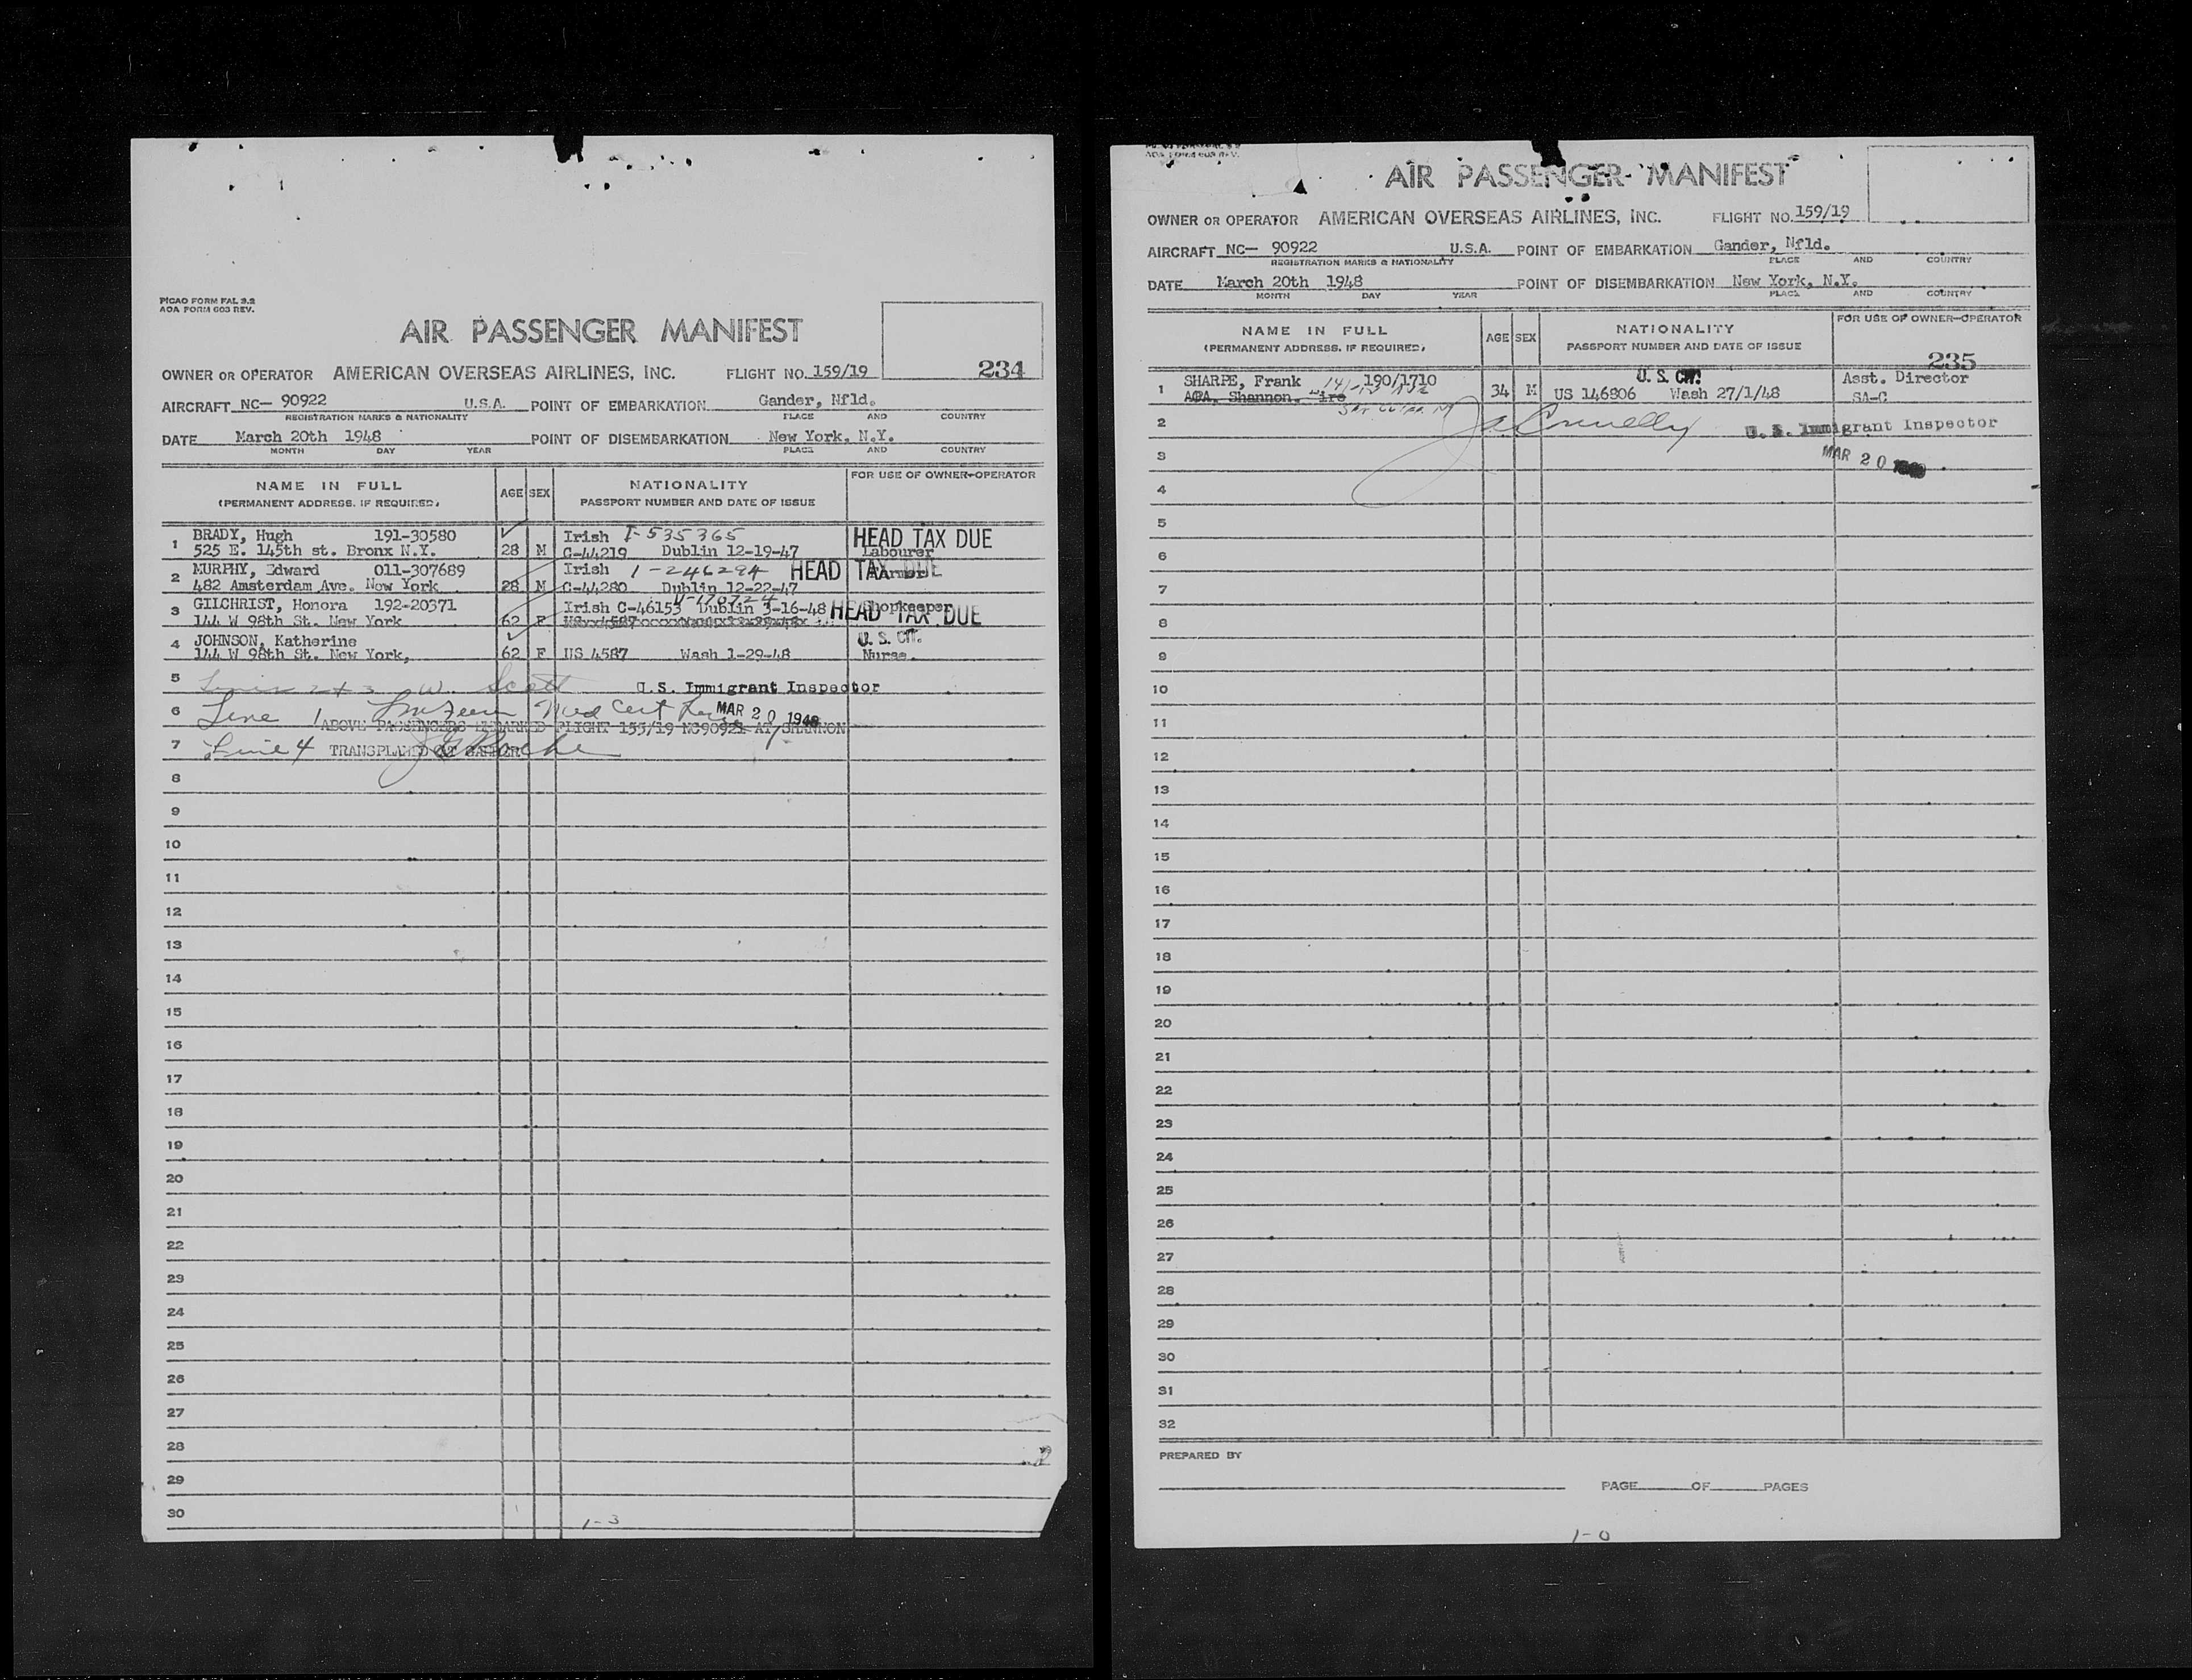 PICAO FORM FAL 2.2
AOA FORM 603 REV.
AIR PASSENGER MANIFEST
234
OWNER OR OPERATOR AMERICAN OVERSEAS AIRLINES, INC. FLIGHT NO. 159/19
AIRCRAFT NC— 90922 U.S.A. POINT OF EMBARKATION Gander, Nfld.
REGISTRATION MARKS & NATIONALITY PLACE AND COUNTRY
DATE March 20th 1948 POINT OF DISEMBARKATION New York, N.Y.
MONTH DAY YEAR PLACE AND COUNTRY
NAME IN FULL AGE SEX NATIONALITY FOR USE OF OWNER-OPERATOR
(PERMANENT ADDRESS, IF REQUIRED) PASSPORT NUMBER AND DATE OF ISSUE
1 BRADY, Hugh 191-30580 Irish I-535365 HEAD TAX DUE
525 E. 145th st. Bronx N.Y. 28 M C-44219 Dublin 12-19-47 Labourer
2 MURPHY, Edward 011-307689 Irish 1-246294 HEAD TAX DUE
482 Amsterdam Ave. New York 28 M C-44280 Dublin 12-22-47 Farmer
V-170724
3 GILCHRIST, Honora 192-20371 Irish C-46153 Dublin 3-16-48 Shopkeeper
144 W 98th St. New York 62 F HEAD TAX DUE
4 JOHNSON, Katherine U. S. CIT.
144 W 98th St. New York, 62 F US 4587 Wash 1-29-48 Nurse.
5 Lines 2+3 W. Scott U.S. Immigrant Inspector
6 Line 1 Med Cert MAR 20 1948
ABOVE PASSENGERS EMBARKED FLIGHT 159/19 NC90922 AT SHANNON
7 Line 4 TRANSPLANED AT GANDER
8
9
10
11
12
13
14
15
16
17
18
19
20
21
22
23
24
25
26
27
28
29
30
1-3
AOA FORM 603 REV.
AIR PASSENGER MANIFEST
OWNER OR OPERATOR AMERICAN OVERSEAS AIRLINES, INC. FLIGHT NO. 159/19
AIRCRAFT NC— 90922 U.S.A. POINT OF EMBARKATION Gander, Nfld.
REGISTRATION MARKS & NATIONALITY PLACE AND COUNTRY
DATE March 20th 1948 POINT OF DISEMBARKATION New York, N.Y.
MONTH DAY YEAR PLACE AND COUNTRY
NAME IN FULL AGE SEX NATIONALITY FOR USE OF OWNER-OPERATOR
(PERMANENT ADDRESS, IF REQUIRED) PASSPORT NUMBER AND DATE OF ISSUE
235
1 SHARPE, Frank 190/1710 U. S. CIT. Asst. Director
AOA, Shannon. Eire 34 M US 146806 Wash 27/1/48 SA-C
2 Connelly U. S. Immigrant Inspector
3 MAR 20
4
5
6
7
8
9
10
11
12
13
14
15
16
17
18
19
20
21
22
23
24
25
26
27
28
29
30
31
32
PREPARED BY
PAGE OF PAGES
1-0